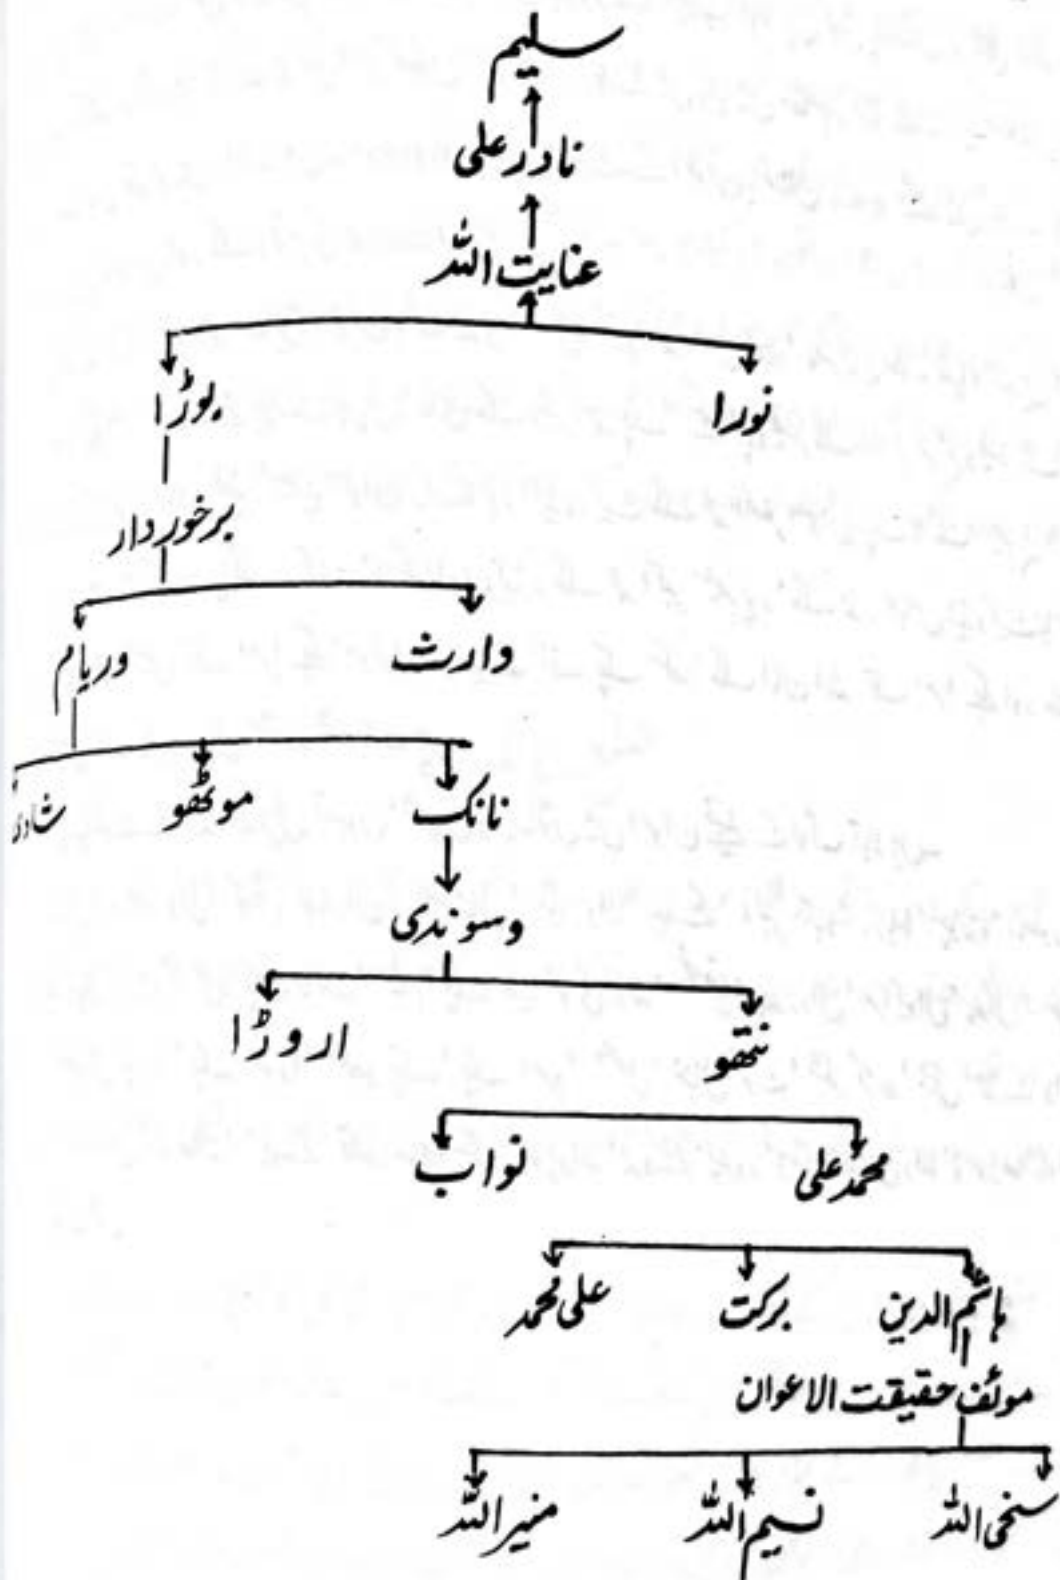 سلیم
نادر علی
عنایت اللہ
نورا بوڑا
برخوردار
وارث وریام
نانک موٹھو
وسوندی
نتھو اروڑا
محمد علی نواب
ہاشم الدین برکت علی محمد
موئف حقیقت الاعوان
سخی اللہ نسیم اللہ منیر اللہ